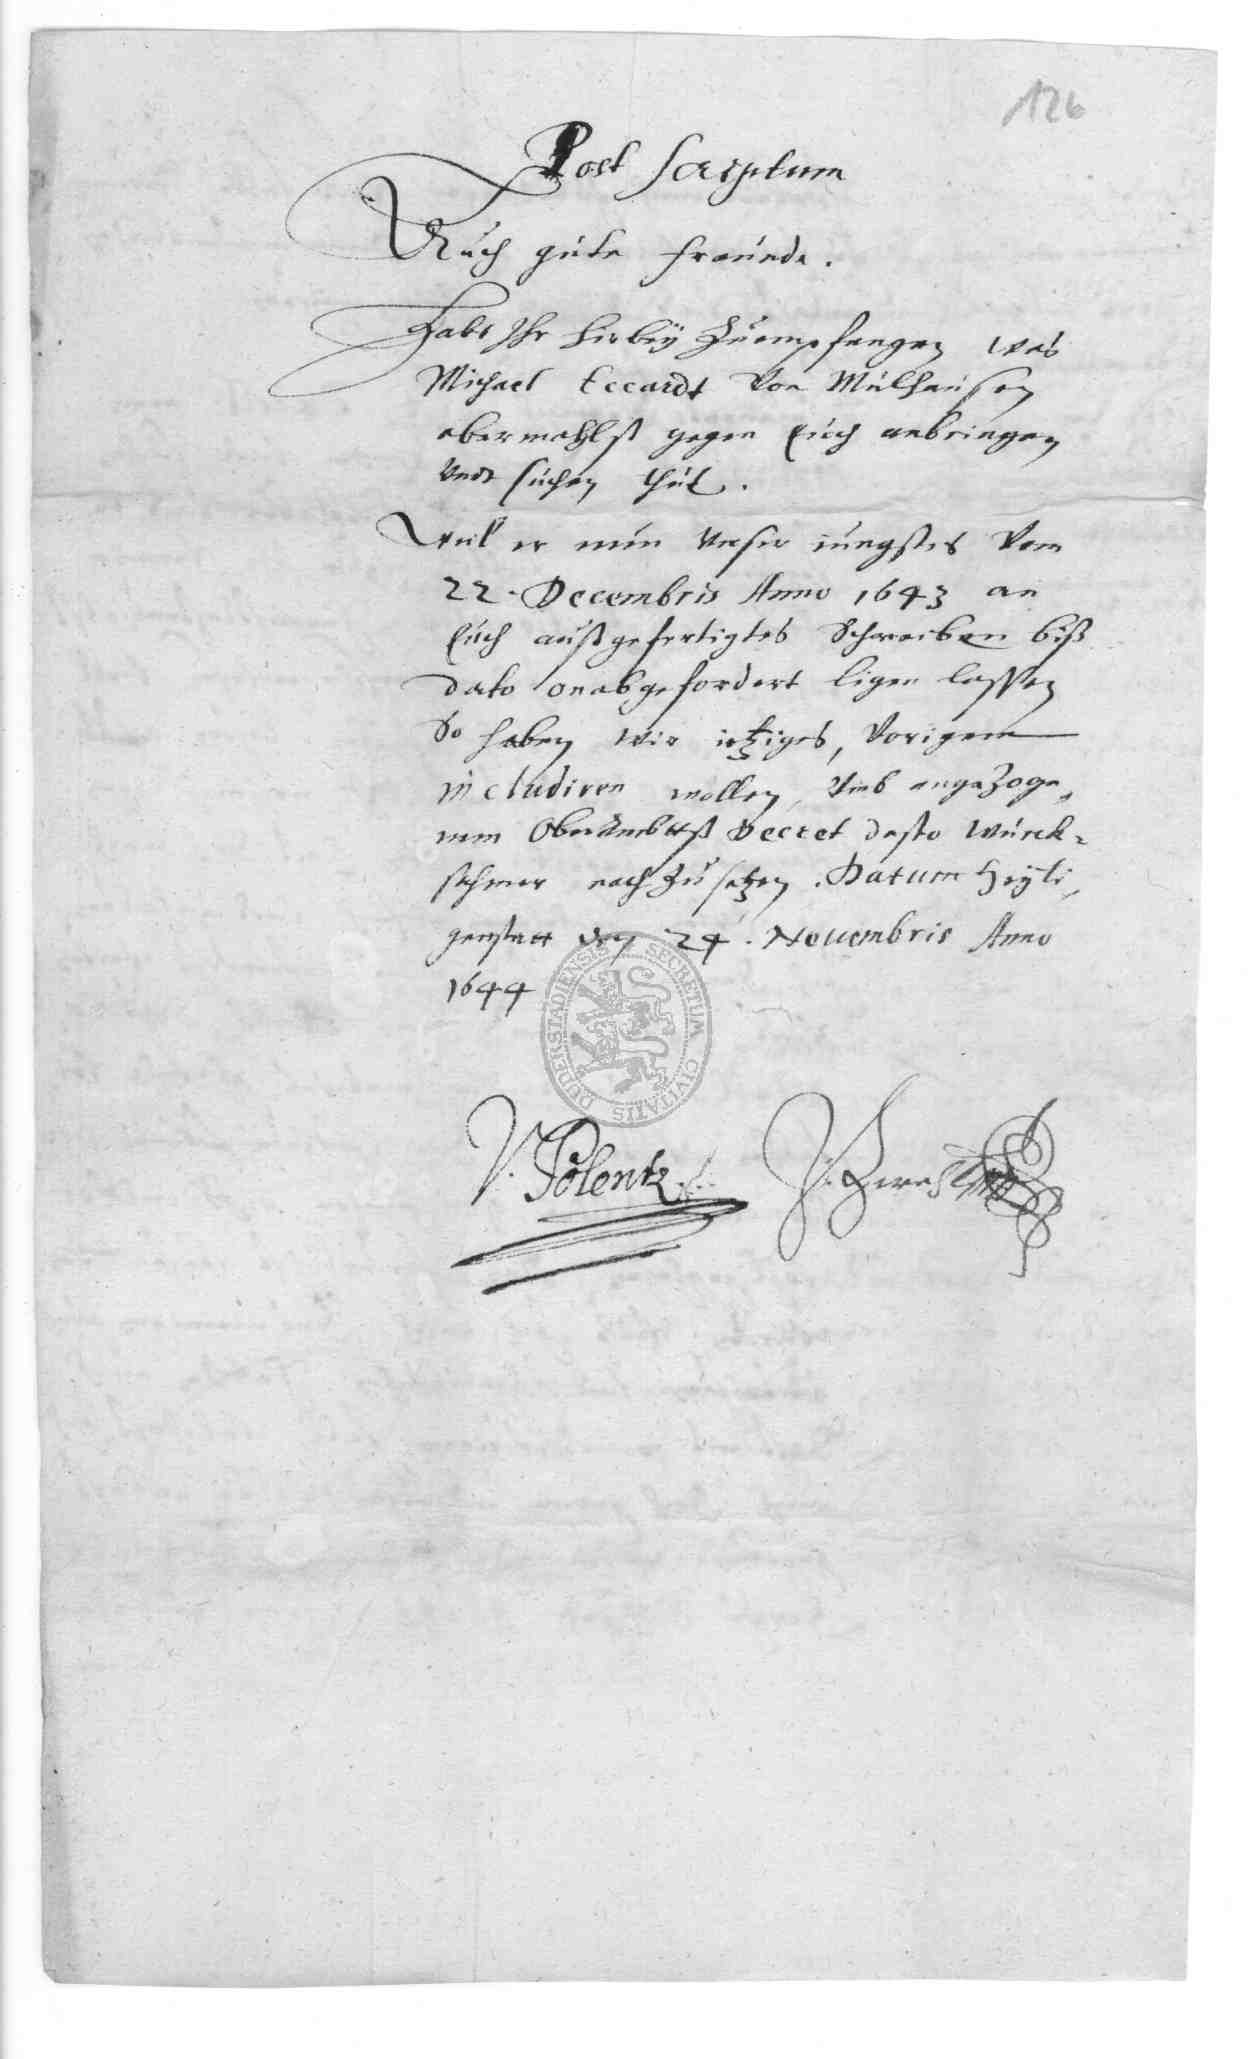 126
Post Scriptum
Auch gute freunde.
Habt Ihr hirbey Zu empfangen was
Michael Eccardt von Mülhausen
abermahlß gegen Euch anbringen
undt suchen thut.
Weil er nun unser jungstes vom
22. Decembris Anno 1643 an
Euch außgefertigtes Schreiben biß
dato onabgefordert ligen lassen
So haben wir ietziges, vorigem
includiren wollen, umb angezoge,
nem Oberambtß Decret desto würck-
sahmer nach Zu setzen. Datum Heyli,
genstatt den 24. Novembris Anno
1644
SECRETUM CIVITATIS DUDERSTADIENSIS
V. Polentz